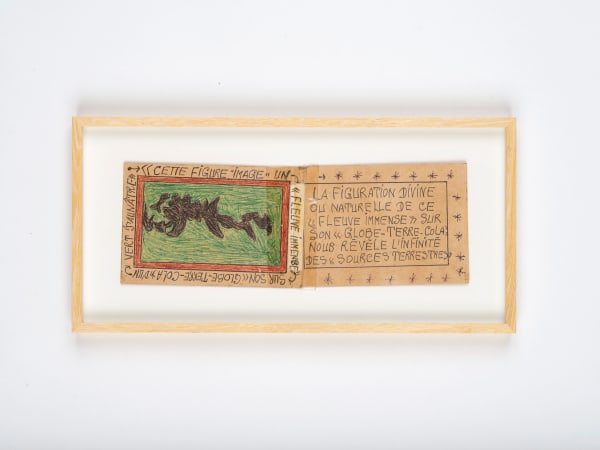 « CETTE FIGURE "IMAGE" UN
« FLEUVE IMMENSE »
SUR SON « GLOBE-TERRE-COLA » D'UN
VERT
LA FIGURATION DIVINE
OU NATURELLE DE CE
« FLEUVE IMMENSE » SUR
SON « GLOBE-TERRE-COLA »
NOUS RÉVÈLE L'INFINITÉ
DES « SOURCES TERRESTRES »